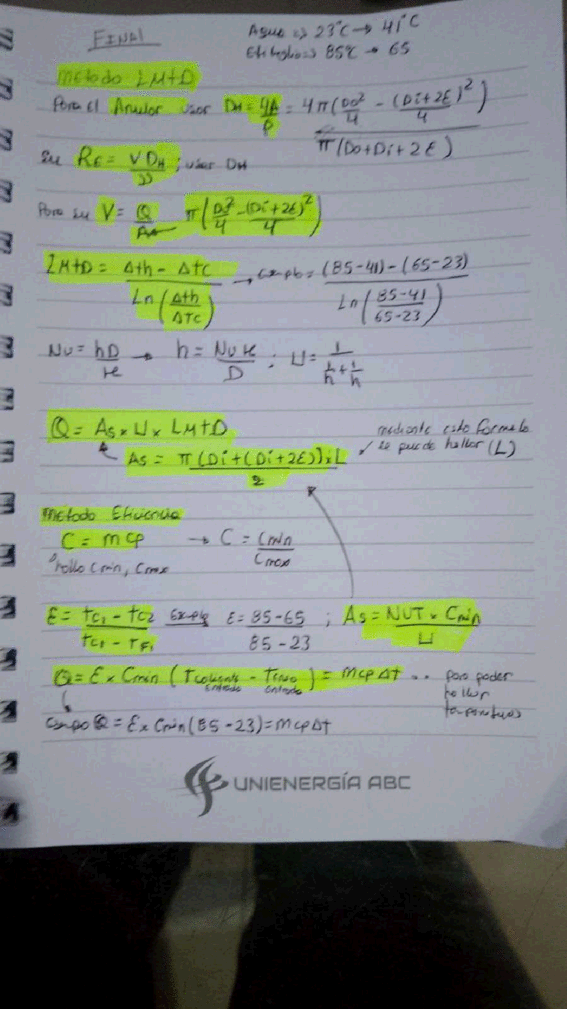 FINAL
Agua => 23°C → 41°C
Etileglicol => 85°C → 65
Metodo LMTD
Para el Anular usar DH = 4A/P = 4π(Do²/4 - (Di+2E)²/4) / π(Do+Di+2E)
su Re = VDH/ν ; usar DH
Para su V = Q/A π(Do²/4 - (Di+2E)²/4)
LMTD = Δth - ΔTC / Ln(Δth/ΔTC) → = (85-41) - (65-23) / Ln(85-41/65-23)
NU = hD/K → h = NU K/D ; U = 1 / 1/h + 1/h
Q = As x U x LMTD
mediante esta formula
se puede hallar (L)
As = π(Di+(Di+2E)) x L / 2
Metodo Eficiencia
C = mcp → C = Cmin/Cmax
hallo Cmin, Cmax
E = tC1 - tC2 / tC1 - TF1 E = 85-65 / 85-23 ; As = NUT x Cmin / U
Q = E x Cmin (Tcaliente entrada - Tfrio entrada) = mcpΔt .. para poder
hallar
temperaturas
Q = E x Cmin (85-23) = mcpΔt
UNIENERGÍA ABC